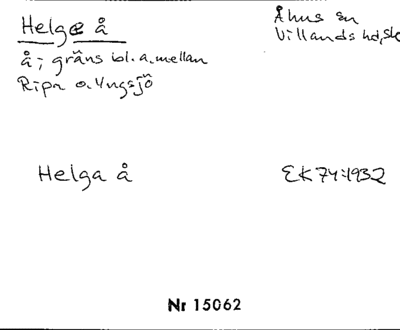 Helge å
Åhus sn
Villands hd, Sk
å; gräns bl. a. mellan
Ripa o. Yngsjö
Helga å
EK 74:1932
Nr 15062